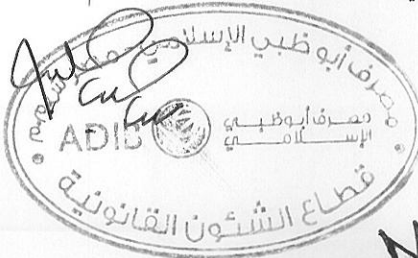 مصرف أبوظبي الإسلامي - مصر ش.م.م
ADIB
مصرف أبوظبي
الإسلامي
قطاع الشئون القانونية